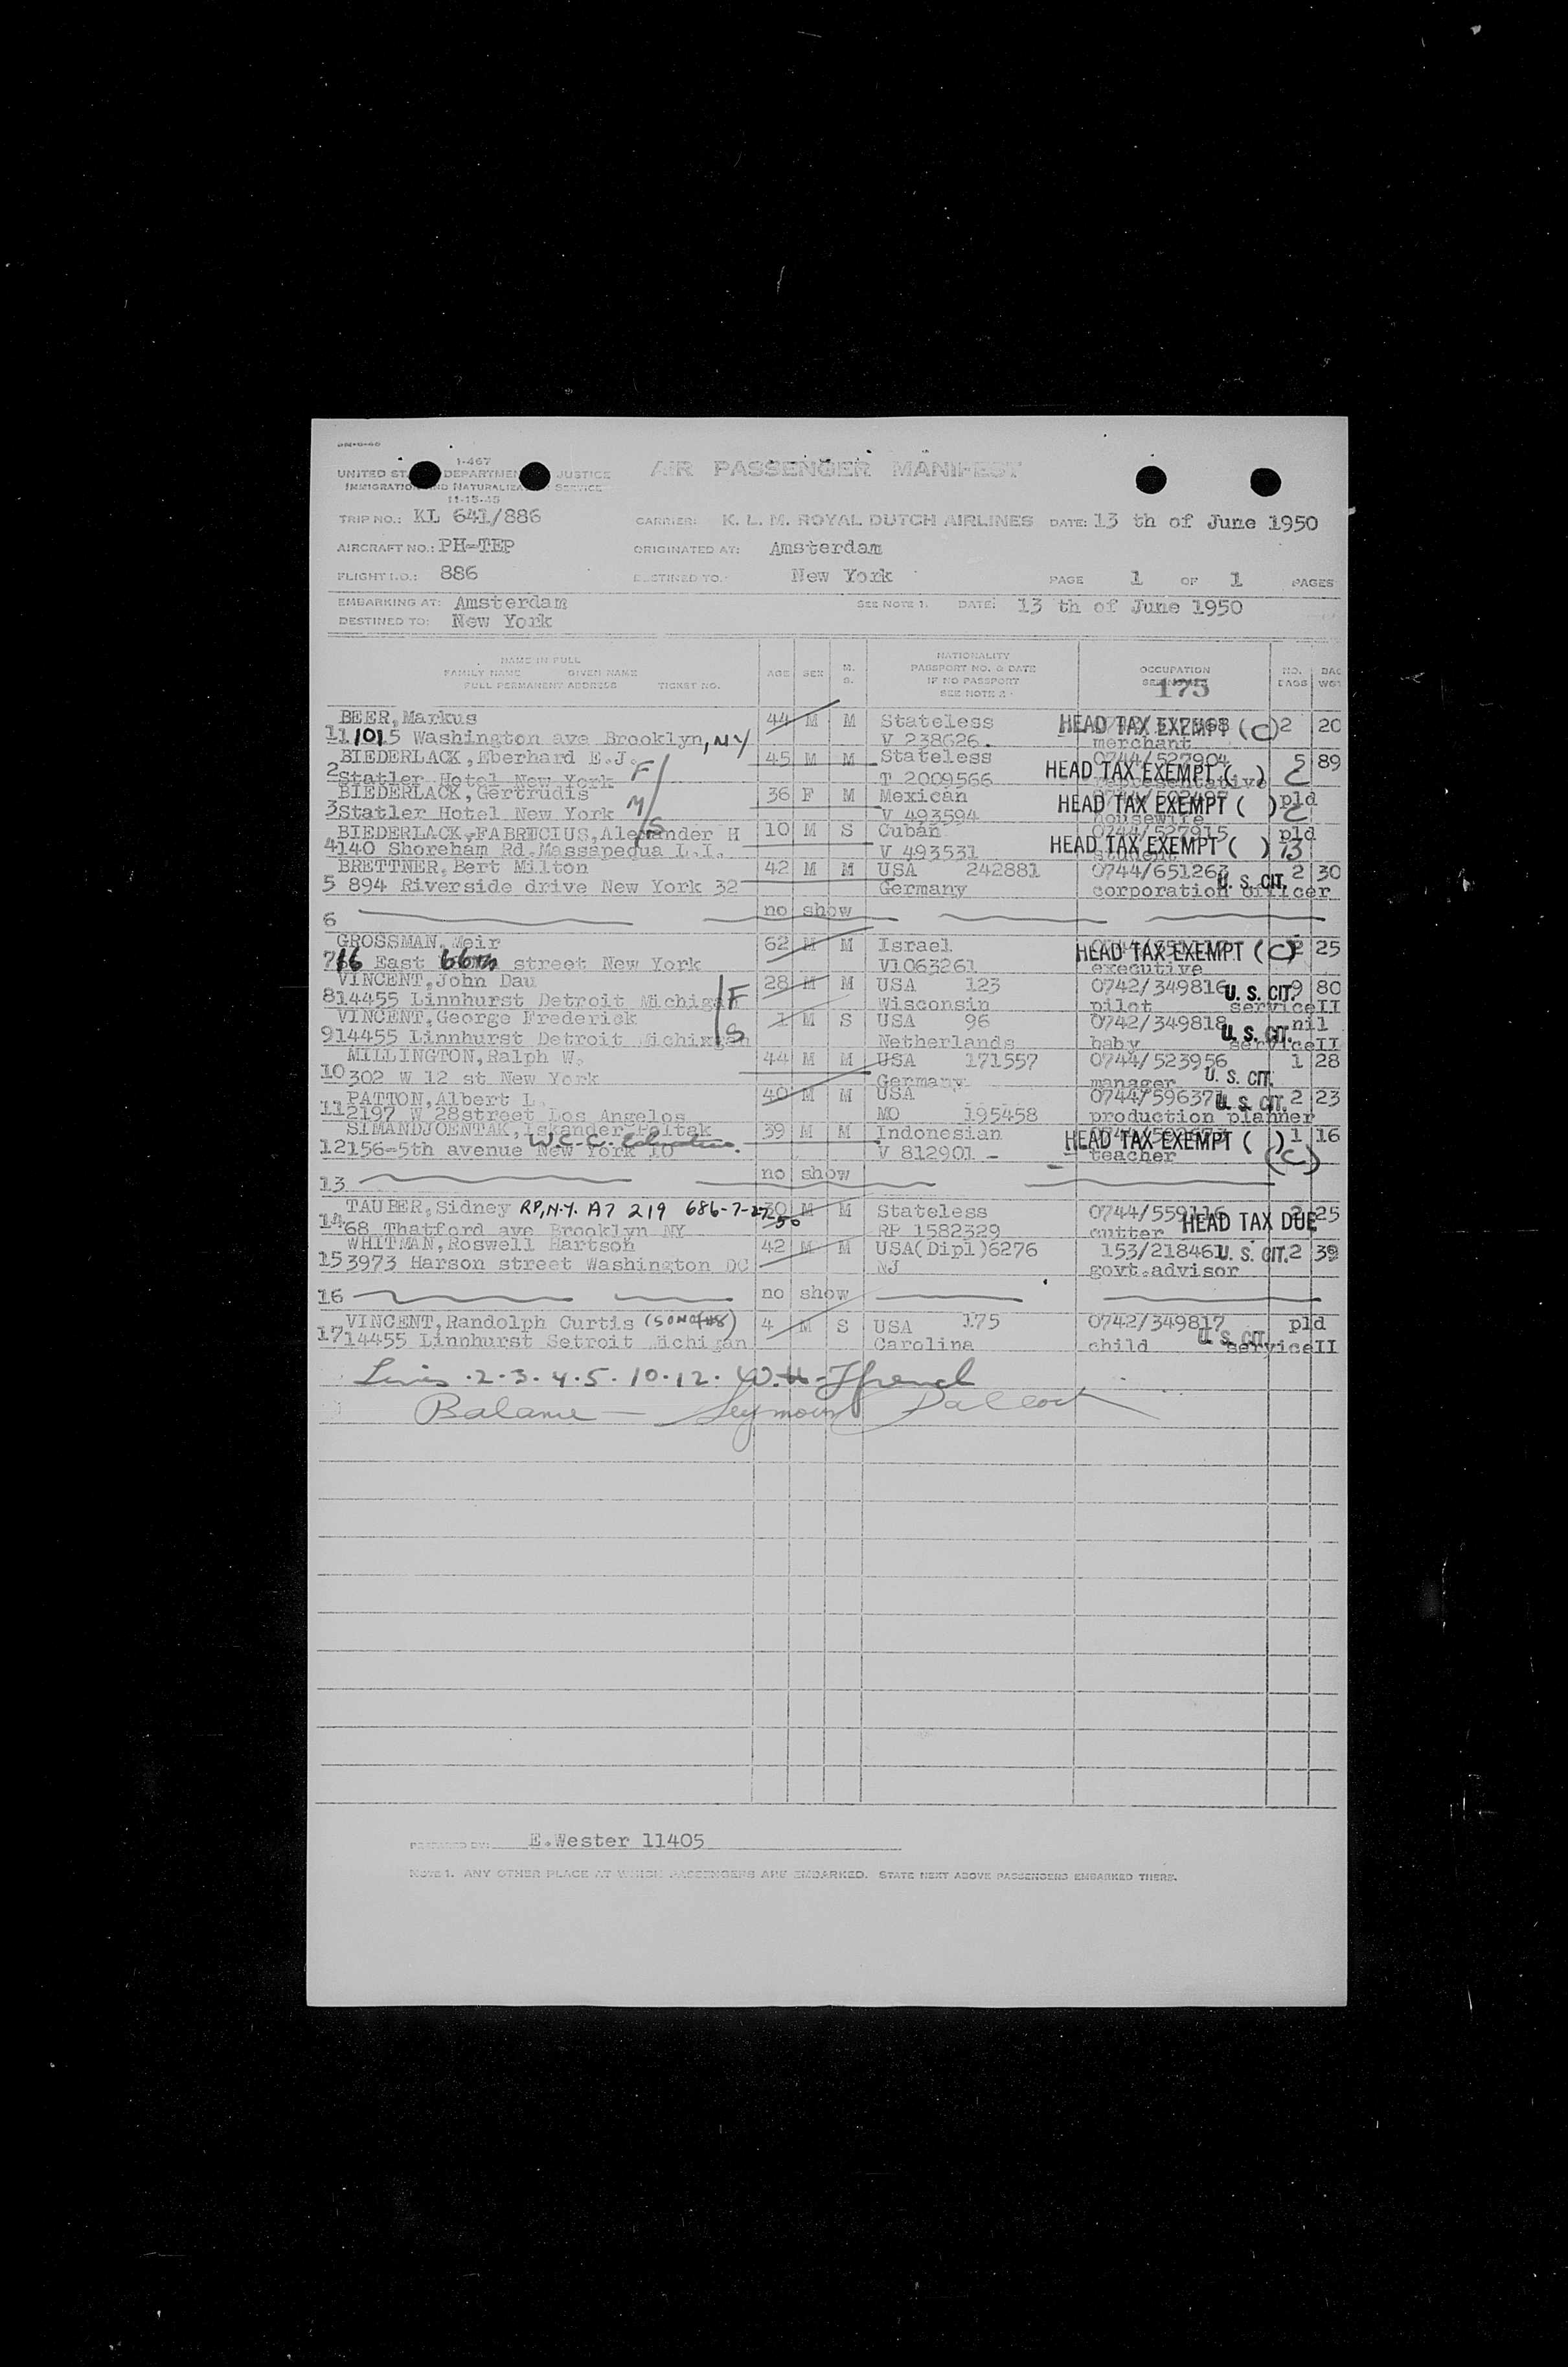 I-467
AIR PASSENGER MANIFEST
UNITED DEPARTMENT JUSTICE
IMMIGRATION AND NATURALIZATION SERVICE
11-15-45
TRIP NO.: KL 641/886 CARRIER: K. L. M. ROYAL DUTCH AIRLINES DATE: 13 th of June 1950
AIRCRAFT NO.: PH-TEP ORIGINATED AT: Amsterdam
FLIGHT I.D.: 886 DESTINED TO: New York PAGE 1 OF 1 PAGES
EMBARKING AT: Amsterdam SEE NOTE 1. DATE: 13 th of June 1950
DESTINED TO: New York
NAME IN FULL
FAMILY NAME GIVEN NAME
FULL PERMANENT ADDRESS TICKET NO.
AGE SEX M. S.
NATIONALITY
PASSPORT NO. & DATE
IF NO PASSPORT
SEE NOTE 2
OCCUPATION
175
NO. BAGS
BAG WGT
BEER, Markus 44 M M Stateless HEAD TAX EXEMPT (C) 2 20
1 1015 Washington ave Brooklyn, NY V 238626. merchant
BIEDERLACK, Eberhard E.J. 45 M M Stateless 0744/527904 5 89
2 Statler Hotel New York F T 2009566 HEAD TAX EXEMPT ( ) C representative
BIEDERLACK, Gertrudis 36 F M Mexican HEAD TAX EXEMPT ( ) C pld
3 Statler Hotel New York M V 493594 housewife
BIEDERLACK-FABRUCIUS, Alexander H S 10 M S Cuban 0744/527915 pld
4 140 Shoreham Rd.Massapequa L.I. V 493531 HEAD TAX EXEMPT ( ) 13 student
BRETTNER, Bert Milton 42 M M USA 242881 0744/651263 U. S. CIT. 2 30
5 894 Riverside drive New York 32 Germany corporation officer
6 no show
GROSSMAN, Meir 62 M M Israel HEAD TAX EXEMPT (C) 2 25
7 16 East 66th street New York V1063261 executive
VINCENT, John Dau 28 M M USA 123 0742/349816 U. S. CIT. 9 80
8 14455 Linnhurst Detroit Michigan F Wisconsin pilot serviceII
VINCENT, George Frederick 1 M S USA 96 0742/349818 U. S. CIT. nil
9 14455 Linnhurst Detroit Michigan S Netherlands baby serviceII
MILLINGTON, Ralph W. 44 M M USA 171557 0744/523956 1 28
10 302 W 12 st New York Germany manager U. S. CIT.
PATTON, Albert L. 40 M M USA 0744/596371 U. S. CIT. 2 23
11 2197 W 28street Los Angelos MO 195458 production planner
SIMANDJOENTAK, Iskander Poltak 39 M M Indonesian HEAD TAX EXEMPT ( ) 1 16
12 156-5th avenue New York 10 W.C.C. V 812901 - teacher (C)
13 no show
TAUBER, Sidney RP, N.Y. A7 219 686-7-27-50 30 M M Stateless 0744/559116 25
14 68 Thatford ave Brooklyn NY RP 1582329 cutter HEAD TAX DUE
WHITMAN, Roswell Hartson 42 M M USA(Dipl)6276 153/218461 U. S. CIT. 2 39
15 3973 Harson street Washington DC NJ govt.advisor
16 no show
VINCENT, Randolph Curtis (SON OF #8) 4 M S USA 175 0742/349817 pld
17 14455 Linnhurst Setroit Michigan Carolina child U. S. CIT. serviceII
Lines .2.3.4.5.10.12. W.H. Ffrench
Balance — Seymour
PREPARED BY: E.Wester 11405
NOTE 1. ANY OTHER PLACE AT WHICH PASSENGERS ARE EMBARKED. STATE NEXT ABOVE PASSENGERS EMBARKED THERE.